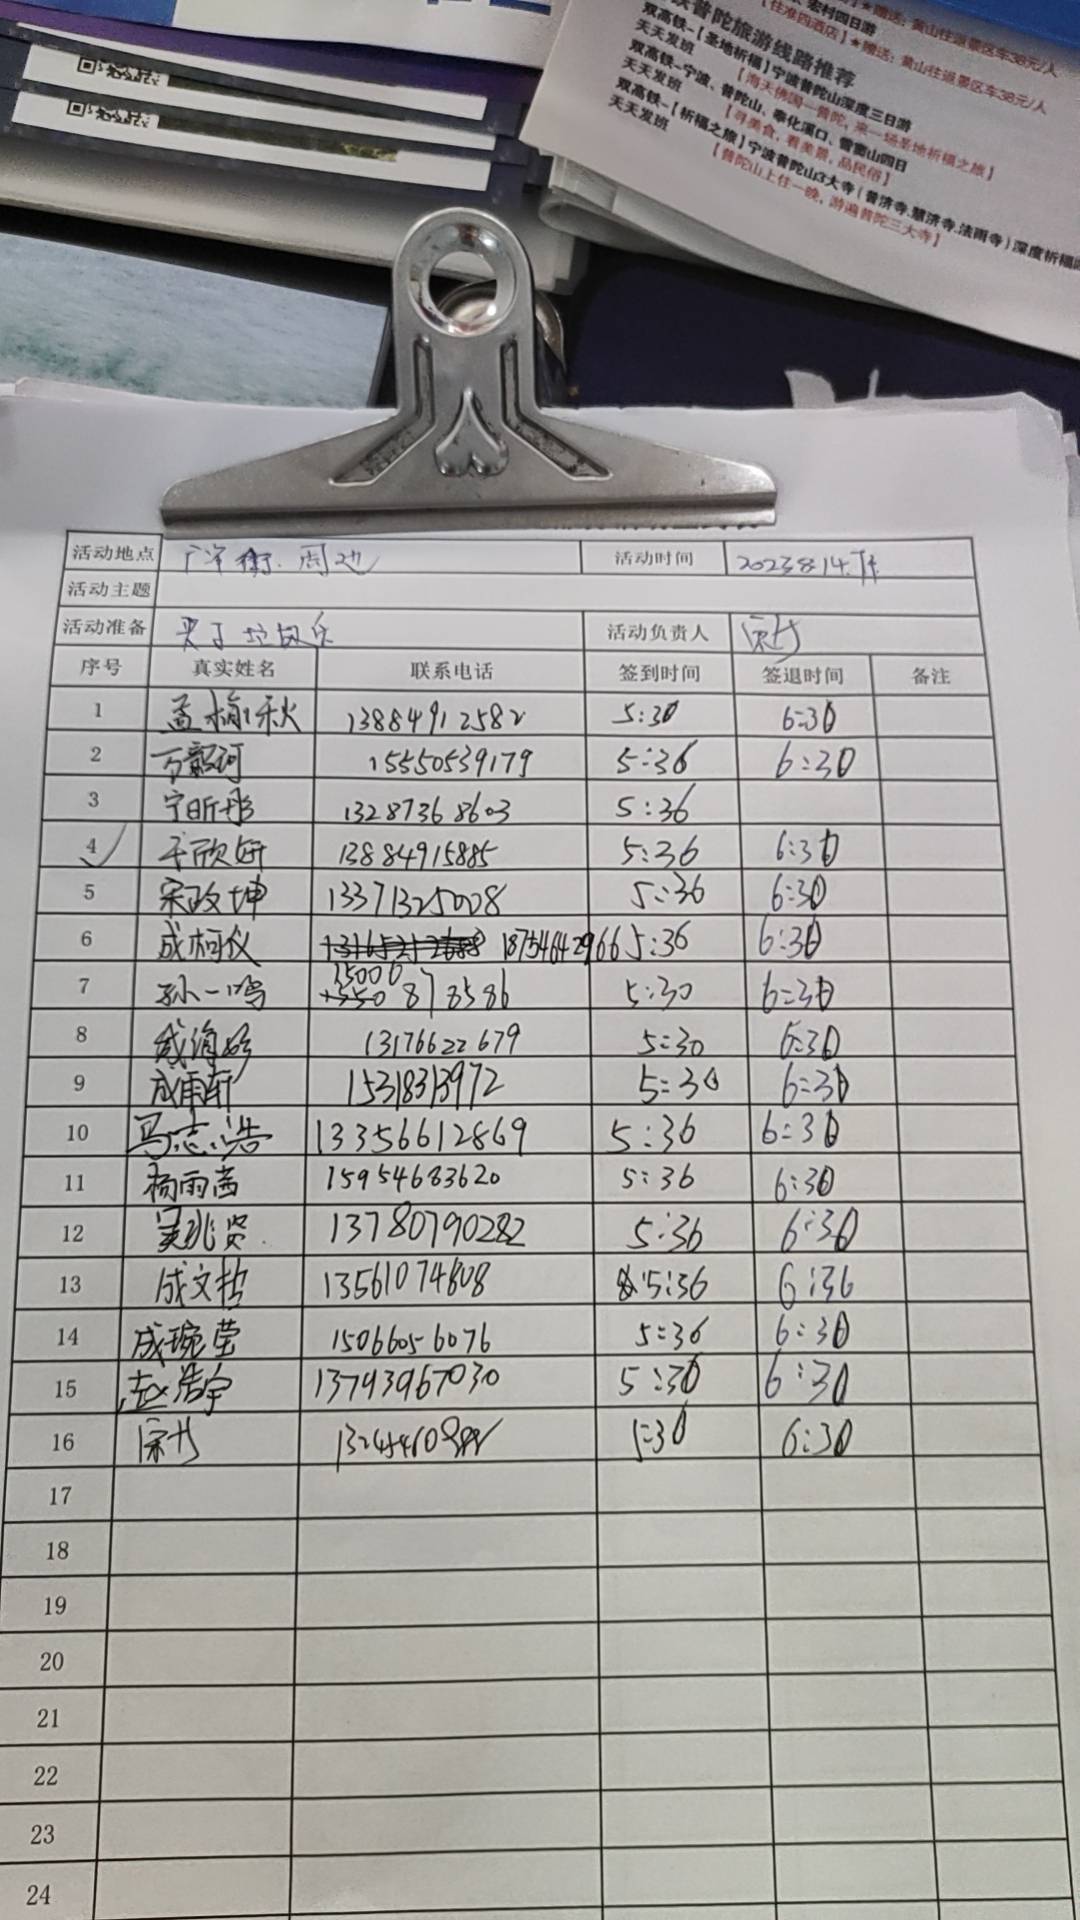 宏村四日游
【住淮四酒店】★赠送：黄山往返景区车38元/人
普陀旅游线路推荐
双高铁-【圣地祈福】宁波普陀山深度三日游
天天发班 【海天佛国一普陀，来一场圣地祈福之旅】
双高铁-宁波、普陀山、奉化溪口、雪窦山四日
天天发班 【寻美食，看美景，品民俗】
双高铁-【祈福之旅】宁波普陀山3大寺（普济寺.慧济寺.法雨寺）深度祈福
天天发班 【普陀山上住一晚，游遍普陀三大寺】
活动地点 周边 活动时间 2023.8.14.
活动主题
活动准备 夹子垃圾 活动负责人
序号 真实姓名 联系电话 签到时间 签退时间 备注
1 孟楠秋 13884912582 5:30 6:30
2 万 15550539179 5:36 6:30
3 宁昕彤 13287368603 5:36
4 于欣妍 13884915885 5:36 6:30
5 宋政坤 13371325008 5:36 6:30
6 成柯仪 18754642966 5:36 6:30
7 孙一鸣 15006878586 5:30 6:30
8 13176622679 5:30 6:30
9 成雨轩 15318313972 5:30 6:30
10 马志浩 13356612869 5:36 6:30
11 杨雨茜 15954683620 5:36 6:30
12 吴兆贤 13780790282 5:36 6:30
13 成文哲 13561074808 5:36 6:36
14 成琬莹 15066056076 5:36 6:30
15 赵浩宇 13793967030 5:30 6:30
16 5:30 6:30
17
18
19
20
21
22
23
24